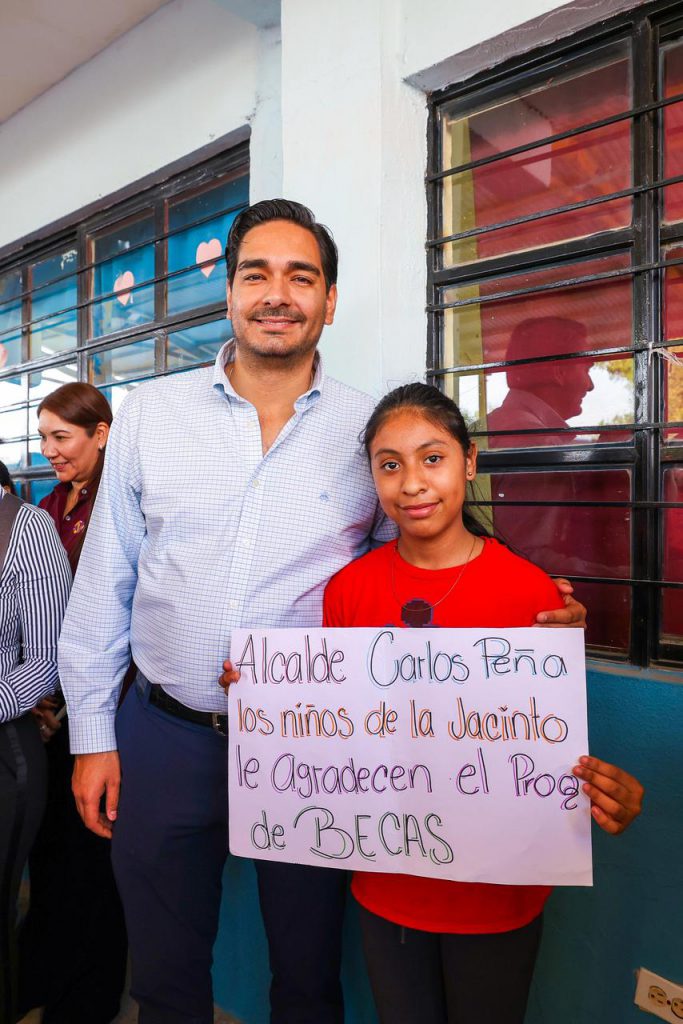 Alcalde Carlos Peña
los niños de la Jacinto
le Agradecen el Prog
de BECAS